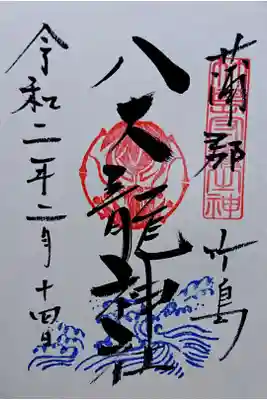 蒲郡 竹島
八大龍神社
令和二年二月十四日